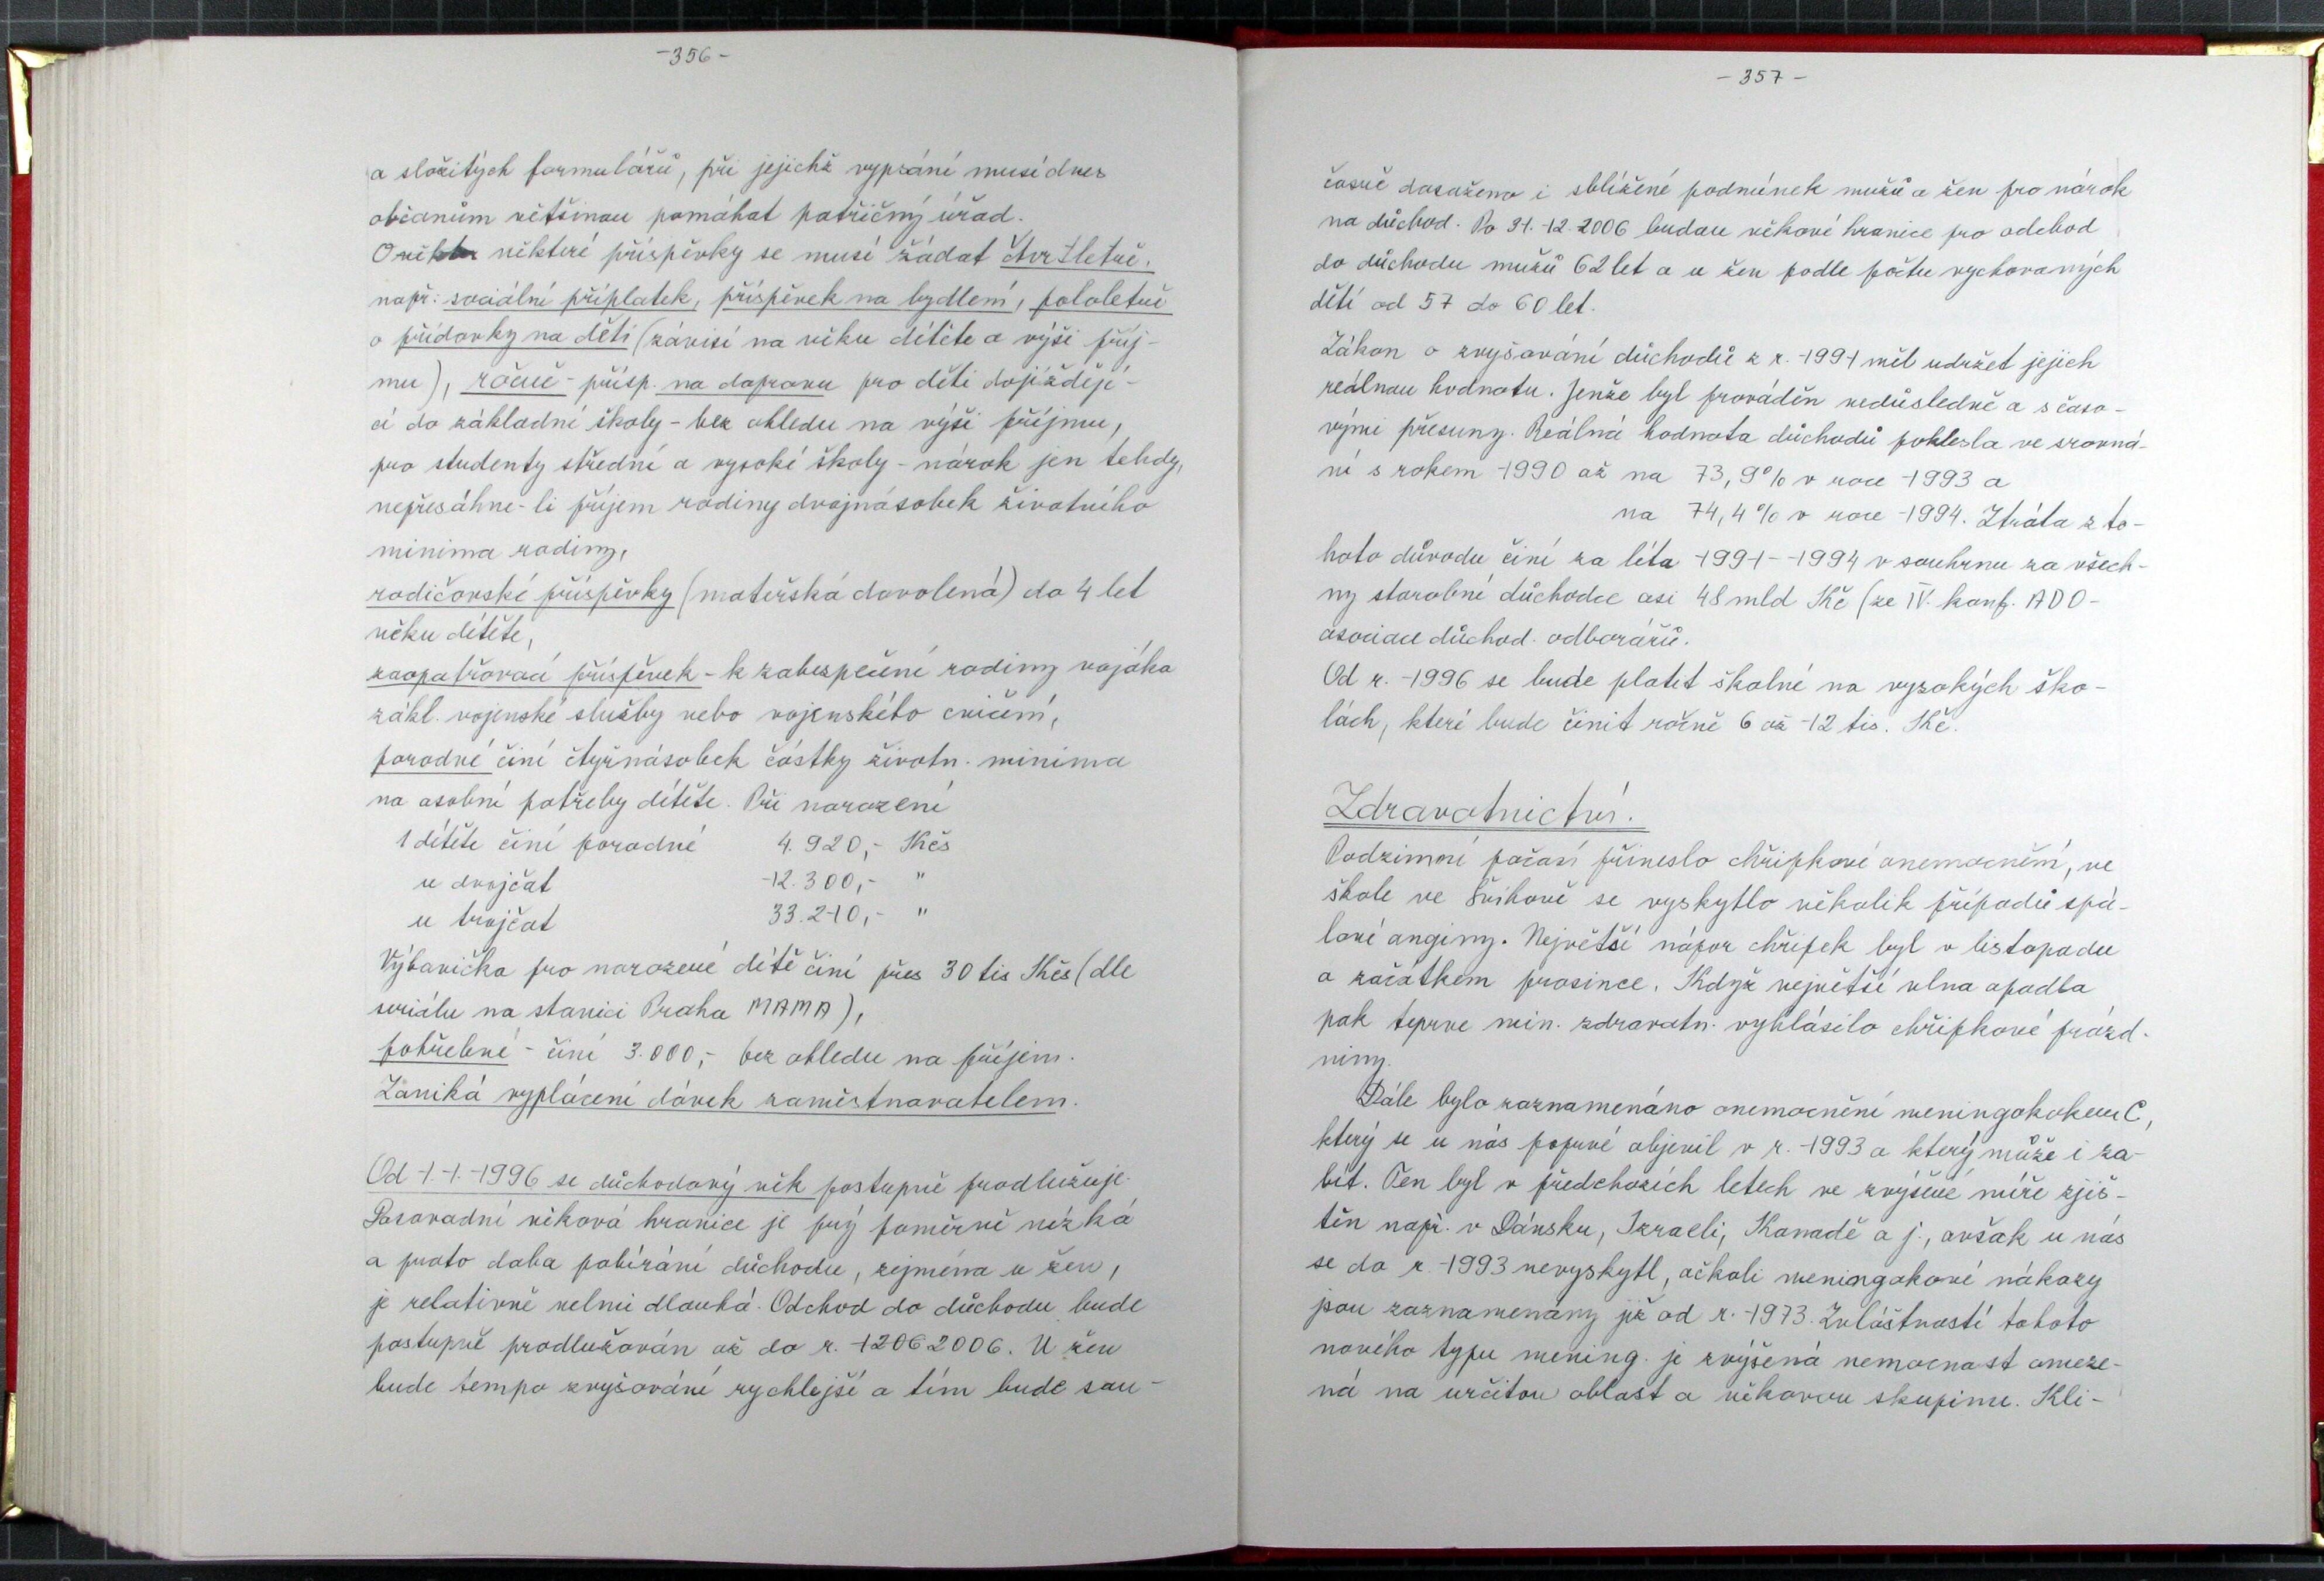 -356-
a složitých formulářů, při jejichž vypsání musí dnes
občanům většinou pomáhat patřičný úřad.
O některé příspěvky se musí žádat čtvrtletně.
např: sociální příplatek, příspěvek na bydlení, pololetně
o přídavky na děti (závisí na věku dítěte a výši příj-
mu), ročně - přísp. na dopravu pro děti dojíždějí-
cí do základní školy - bez ohledu na výši příjmu,
pro studenty střední a vysoké školy - nárok jen tehdy,
nepřesáhne-li příjem rodiny dvojnásobek životního
minima rodiny,
rodičovské příspěvky (mateřská dovolená) do 4 let
věku dítěte,
zaopatřovací příspěvek - k zabespečení rodiny vojáka
zákl. vojenské služby nebo vojenského cvičení,
porodné činí čtyřnásobek částky životn. minima
na osobní potřeby dítěte. Při narození
1 dítěte činí porodné 4.920,- Kčs
u dvojčat 12.300,- "
u trojčat 33.210,- "
Výbavička pro narozené dítě činí přes 30 tis Kčs (dle
seriálu na stanici Praha MAMA),
pohřebné - činí 3.000,- bez ohledu na příjem.
Zaniká vyplácení dávek zaměstnavatelem.
Od 1.1.1996 se důchodový věk postupně prodlužuje.
Dosavadní věková hranice je prý poměrně nízká
a proto doba pobírání důchodu, zejména u žen,
je relativně velmi dlouhá. Odchod do důchodu bude
postupně prodlužován až do r. 1206 2006. U žen
bude tempo zvyšování rychlejší a tím bude sou-
-357-
časně dosaženo i sblížené podmínek mužů a žen pro nárok
na důchod. Po 31.12.2006 budou věkové hranice pro odchod
do důchodu mužů 62 let a u žen podle počtu vychovaných
dětí od 57 do 60 let.
Zákon o zvyšování důchodů z r. 1991 měl udržet jejich
reálnou hodnotu. Jenže byl prováděn nedůsledně a s časo-
vými přesuny. Reálná hodnota důchodů poklesla ve srovná-
ní s rokem 1990 až na 73,9% v roce 1993 a
na 74,4% v roce 1994. Ztráta z to-
hoto důvodu činí za léta 1991--1994 v souhrnu za všech-
ny starobní důchodce asi 48 mld Kč (ze IV. konf. ADO-
asociace důchod. odborářů.
Od r. 1996 se bude platit školné na vysokých ško-
lách, které bude činit ročně 6 až 12 tis. Kč.
Zdravotnictví.
Podzimní počasí přineslo chřipkové onemocnění, ve
škole ve Švihově se vyskytlo několik případů spá-
lové anginy. Největší nápor chřipek byl v listopadu
a začátkem prosince. Když největší vlna opadla
pak teprve min. zdravotn. vyhlásilo chřipkové prázd-
niny.
Dále bylo zaznamenáno onemocnění meningokokem C,
který se u nás poprvé objevil v r. 1993 a který může i za-
bít. Ten byl v předchozích letech ve zvýšené míře zjiš-
těn např. v Dánsku, Izraeli, Kanadě a j., avšak u nás
se do r. 1993 nevyskytl, ačkoli meningokové nákazy
jsou zaznamenány již od r. 1973. Zvláštností tohoto
nového typu mening. je zvýšená nemocnost omeze-
ná na určitou oblast a věkovou skupinu. Kli-